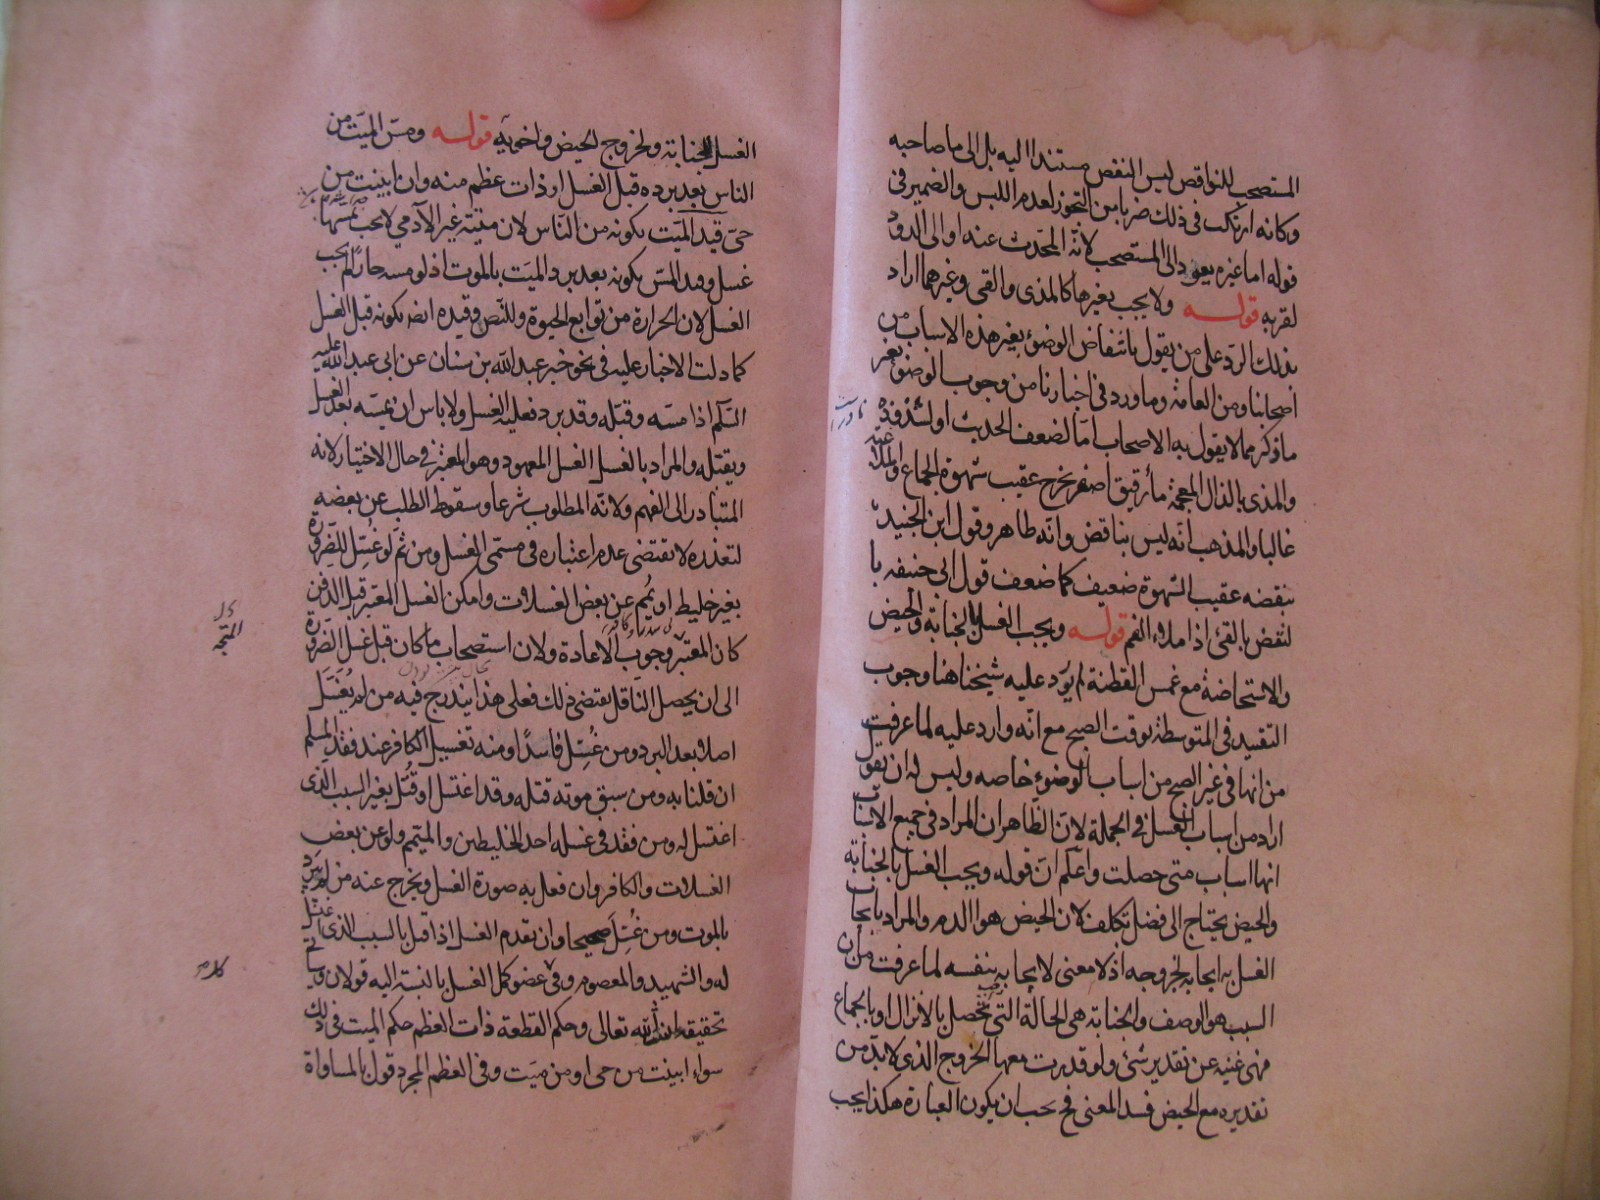 المستصحب للنواقض ليس النقض مستندا اليه بل الى ما صاحبه
وكانه ارتكب في ذلك ضربا من التجوز لعدم اللبس والضمير في
قوله اما غيره يعود الى المستصحب لانه المحدث عنه او الى الدود
لقربه قوله ولا يجب بغيرها كالمذى والقى وغيرهما اراد
بذلك الرد على من يقول بانتقاض الوضوء بغير هذه الاسباب من
اصحابنا ومن العامة وما ورد في اخبارنا من وجوب الوضوء بغير
ما ذكر مما لا يقول به الاصحاب اما لضعف الحديث او لشذوذه
والمذى بالذال المعجمة ماء رقيق اصفر يخرج عقيب شهوة الجماع والملاعبة
غالبا والمذهب انه ليس بناقض وانه طاهر وقول ابن الجنيد
بنقضه عقيب الشهوة ضعيف كما ضعف قول ابى حنيفه با
لنقض بالقئ اذا ملاء الفم قوله ويجب الغسل بالجنابة والحيض
والاستحاضة مع غمس القطنة لم يورد عليه شيخنا هنا وجوب
التقييد في المتوسطة بوقت الصبح مع انه وارد عليه لما عرفت
من انها في غير الصبح من اسباب الوضوء خاصه وليس له ان يقول
اراد من اسباب الغسل في الجملة لان الظاهر ان المراد في جميع الاسباب
انها اسباب متى حصلت واعلم ان قوله ويجب الغسل بالجنابة
والحيض يحتاج الى فضل تكلف لان الحيض هو الدم والمراد بايجاب
الغسل به ايجابه بخروجه اذ لا معنى لايجابه بنفسه لما عرفت من ان
السبب هو الوصف والجنابة هى الحالة التى تحصل بالانزال او بالجماع
فهى غنيه عن تقدير شئ ولو قدرت معها الخروج الذى لا بد من
تقديره مع الحيض فسد المعنى فح يجب ان يكون العبارة هكذا يجب
الغسل للجنابة ولخروج الحيض واخويه قوله ومس الميت من
الناس بعد برده قبل الغسل او ذات عظم منه وان ابينت من
حى قيد الميت بكونه من الناس لان ميتة غير الآدمي لا يجب بمسها
غسل وقيد المس بكونه بعد برد الميت بالموت اذ لو مسه حارا لم يجب
الغسل لان الحرارة من توابع الحيوة وللنص وقيده ايضه بكونه قبل الغسل
كما دلت الاخبار عليه في نحو خبر عبد الله بن سنان عن ابى عبد الله عليه
السلم اذا مسه وقبله وقد برد فعليه الغسل ولا باس ان يمسه بعد الغسل
ويقبله والمراد بالغسل الغسل المعهود وهو المعتبر في حال الاختيار لانه
المتبادر الى الفهم ولانه المطلوب شرعا وسقوط الطلب عن بعضه
لتعذره لا يقتضى عدم اعتباره في مسمى الغسل ومن ثم لو غسل للضرورة
بغير خليط او يمم عن بعض الغسلات وامكن الغسل المعتبر قبل الدفن
كان المعتبر وجوب الاعادة ولان استصحاب ما كان قبل غسل الضرورة
المتجه
الى ان يحصل الناقل يقتضى ذلك فعلى هذا يندرج فيه من لم يغسل
اصلا بعد البرد ومن غسل فاسدا ومنه تغسيل الكافر عند فقد المسلم
ان قلنا به ومن سبق موته قتله وقد اغتسل او قتل بغير السبب الذى
اغتسل له ومن فقد في غسله احد الخليطين والميمم ولو عن بعض
الغسلات والكافر وان فعل به صورة الغسل ويخرج عنه من لم يبرد
بالموت ومن غسل صحيحا وان تقدم الغسل اذا قتل بالسبب الذى اغتسل
له والشهيد والمعصوم وفي عضو كمل الغسل بالنسبة اليه قولان وياتى
تحقيقه انشاء الله تعالى وحكم القطعة ذات العظم حكم الميت في ذلك
سواء ابينت من حى او من ميت وفي العظم المجرد قول بالمساواة